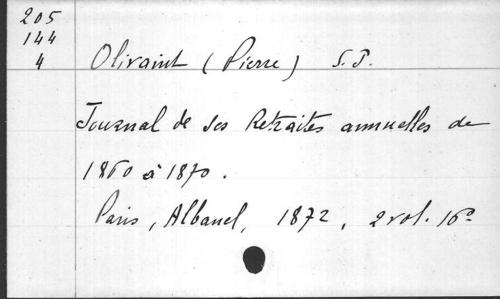 205
144
4
Olivaint (Pierre) S.J.
Journal de ses Retraites annuelles de
1860 à 1870.
Paris, Albanel, 1872, 2 vol. 16º